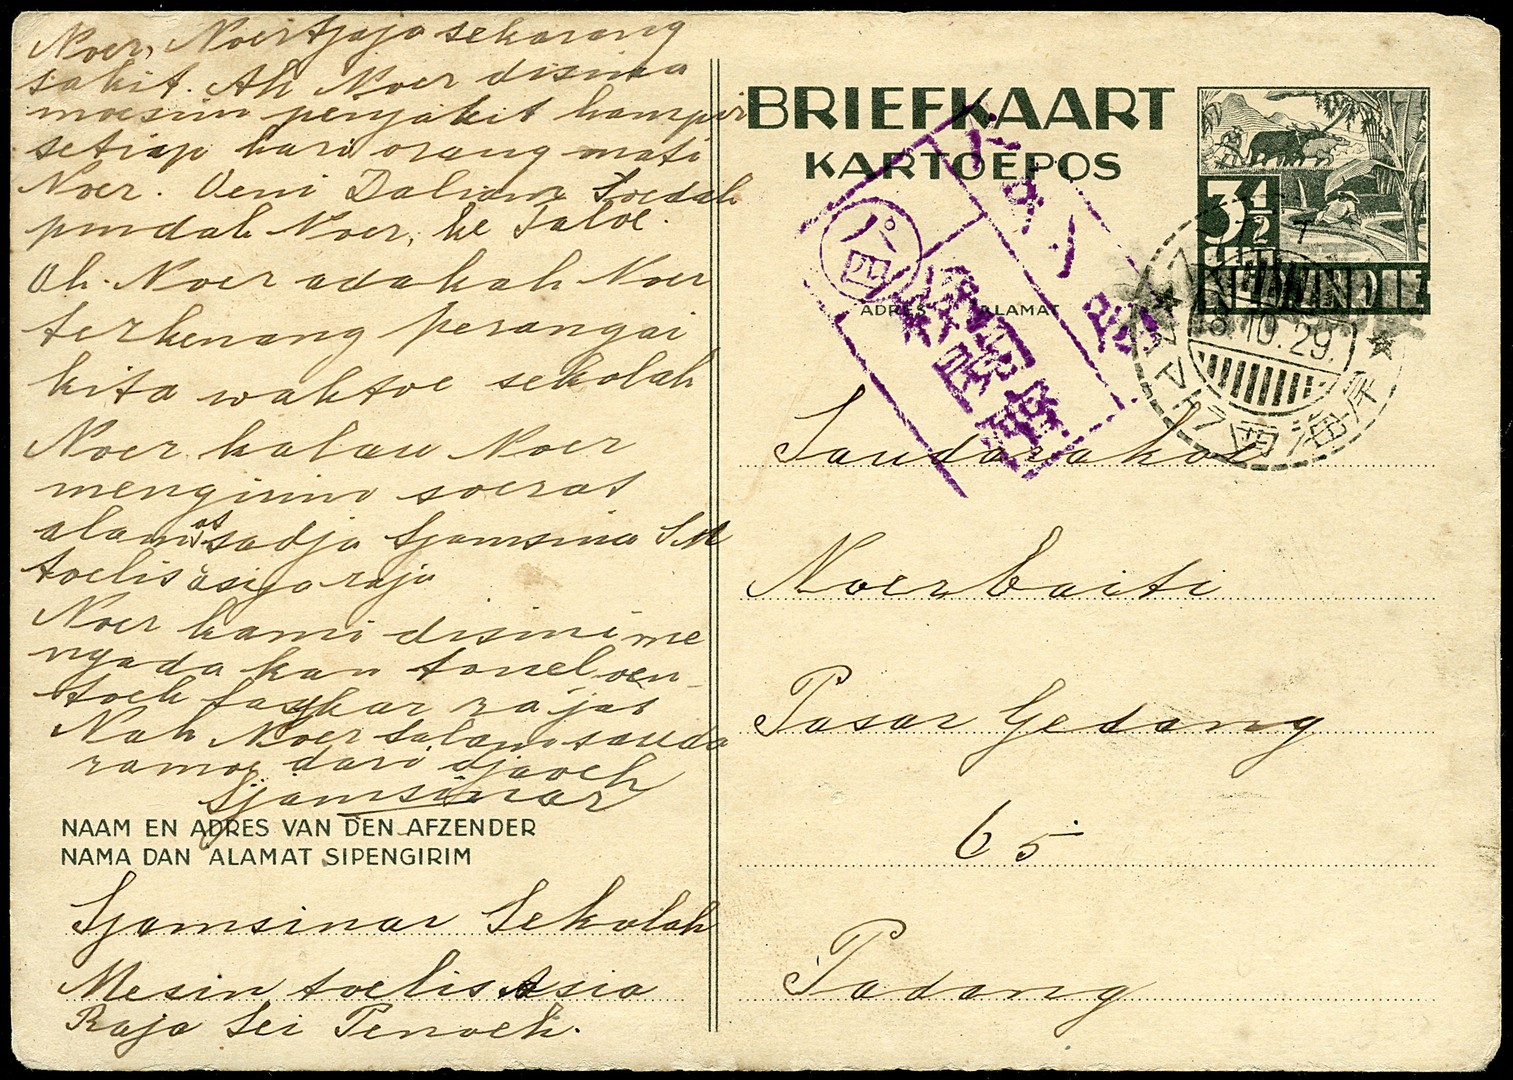 Noer, Noertjaja sekarang
sakit. Ah Noer disina
moesim penjakit hampir
setiap hari orang mati
Noer. Veni Dalian Soedah
pindah Noer, ke Taloe.
Oh. Noer adakah Noer
terkenang perangai
kita waktoe sekolah
Noer kalau Noer
mengirim soerat
alamat sadja Sjamsinar S.M
toelis asia raja
Noer kami disini me
ngada kan toneel oen
toek laskar rajat
Nah Noer salam sauda
ramoe dari djaoeh
Sjamsinar
NAAM EN ADRES VAN DEN AFZENDER
NAMA DAN ALAMAT SIPENGIRIM
Sjamsinar Sekolah
Mesin toelis Asia
Raja Sei Penoeh.
BRIEFKAART
KARTOEPOS
3½
CENT
NED. INDIE
ADRES ALAMAT
パ
四
検閲済
18.10.29.
西海岸
Saudarakoe
Noerbaiti
Pasar Gedang
65
Padang